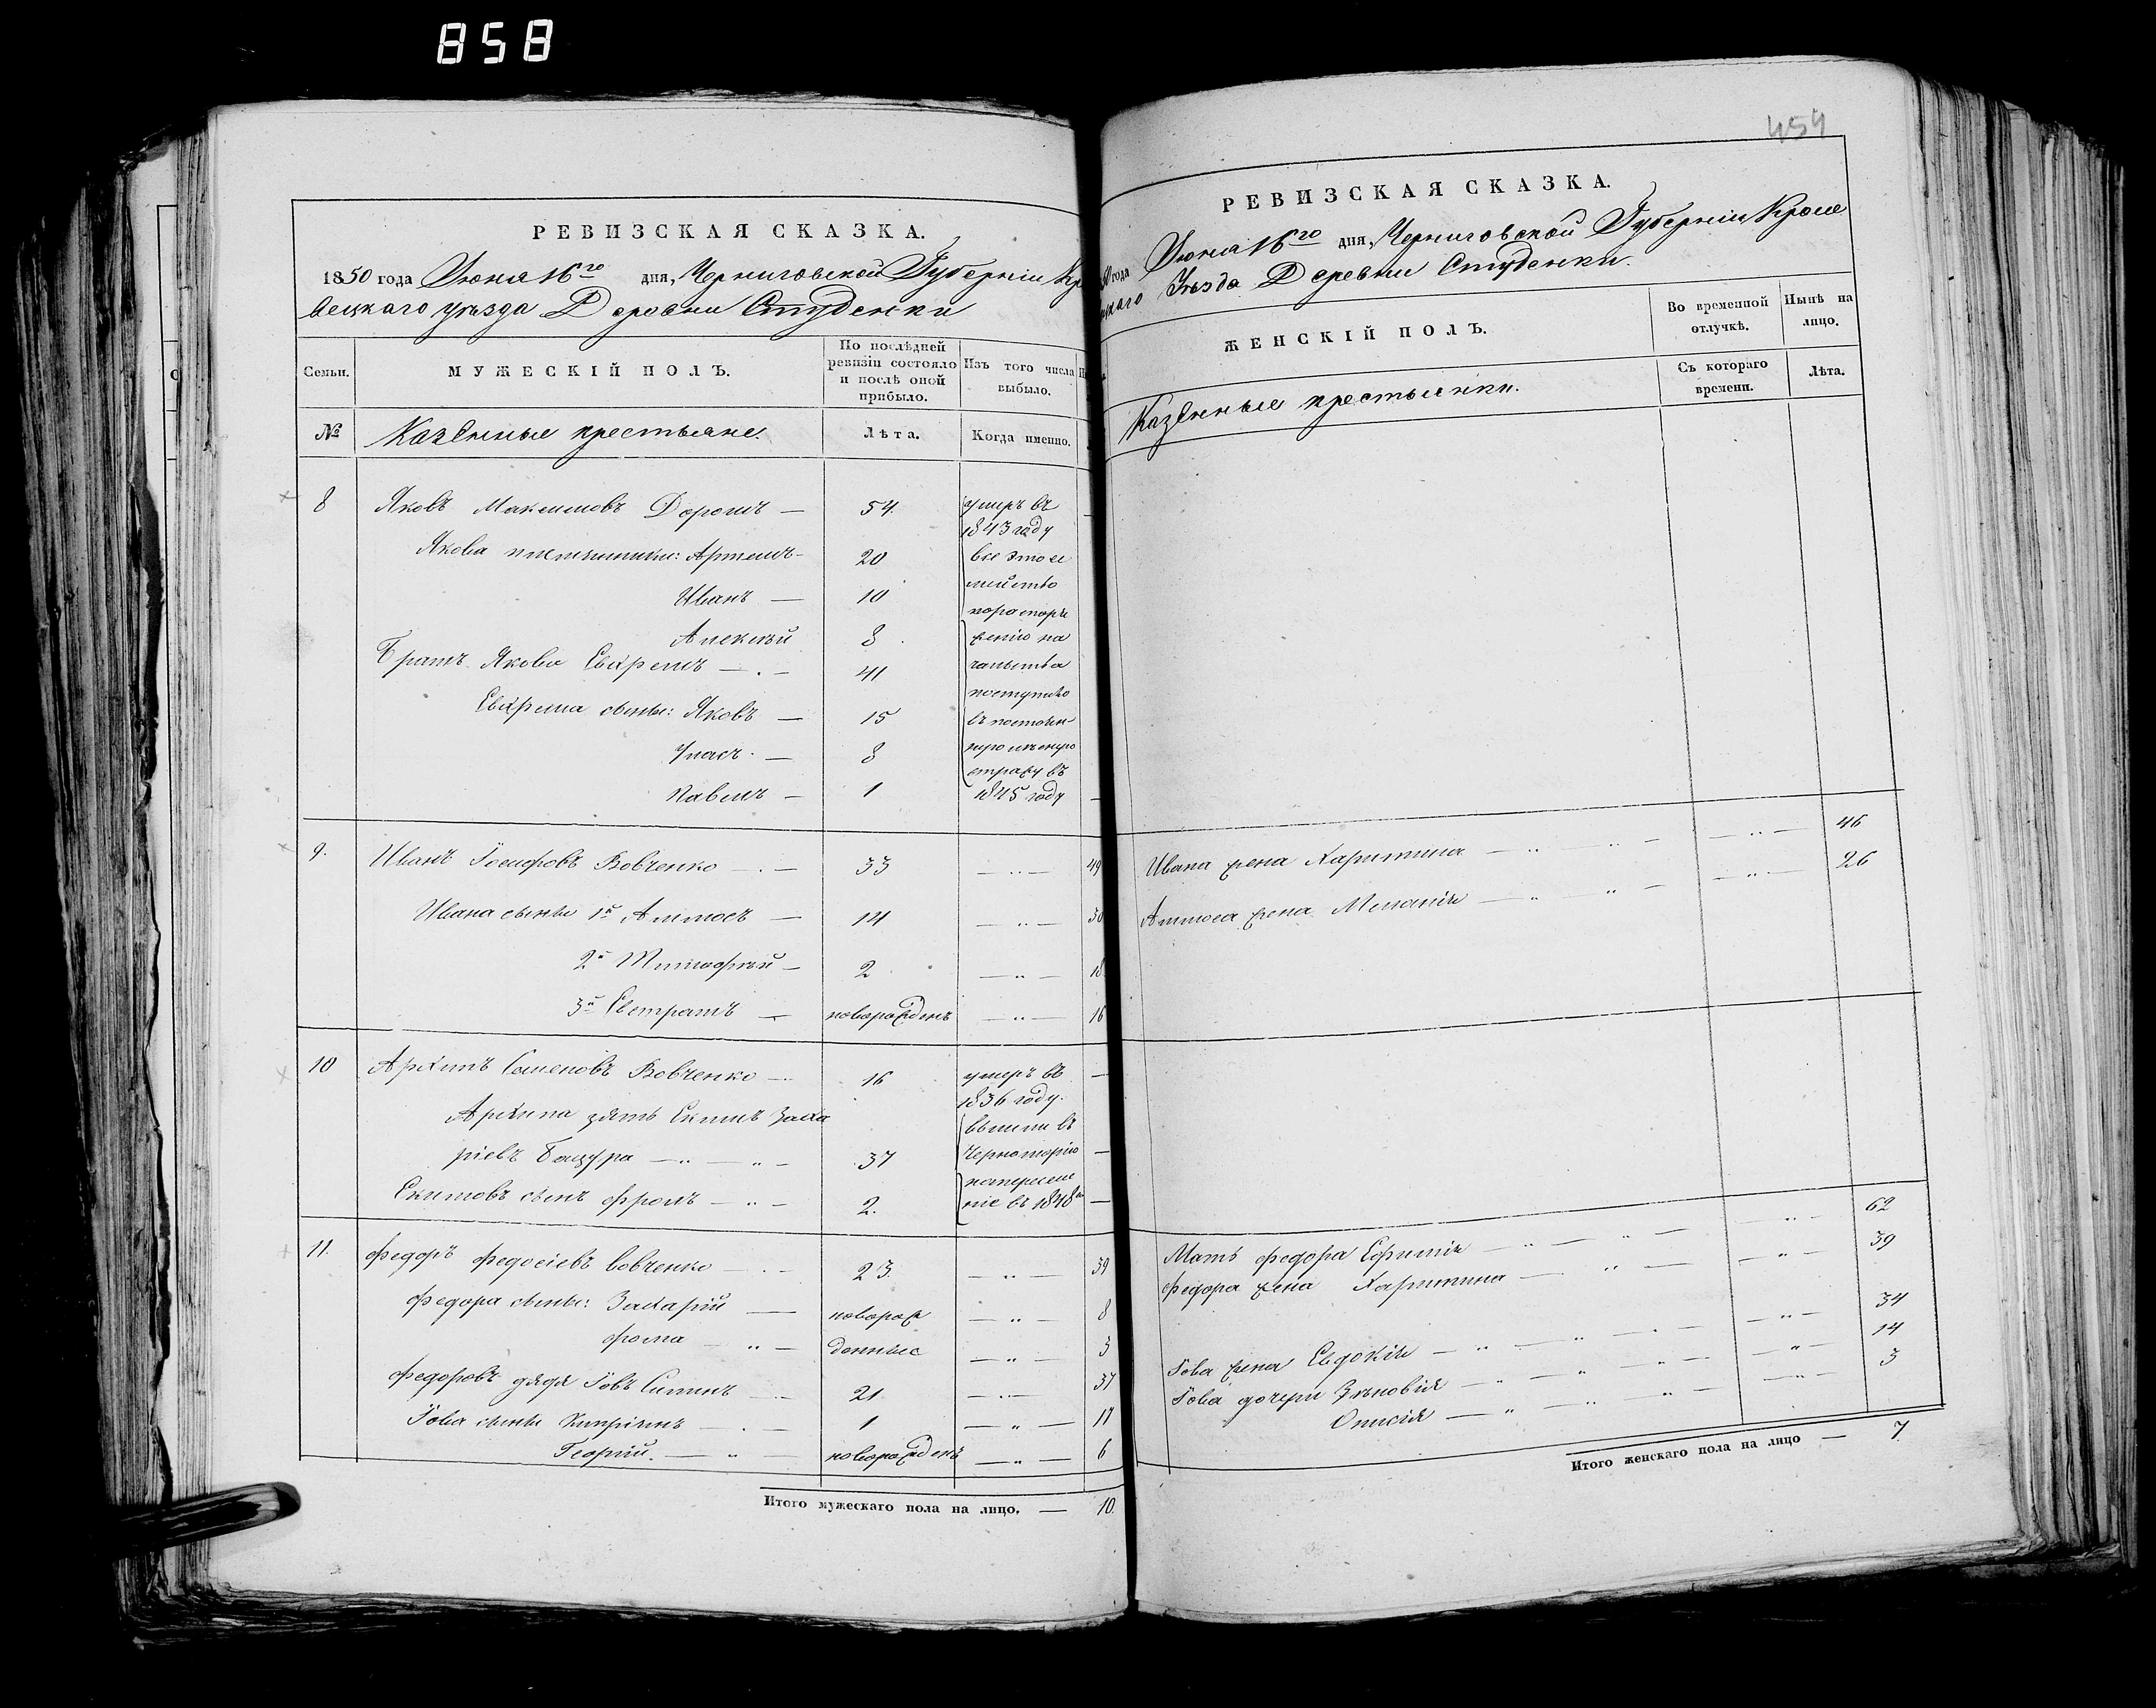 858
РЕВИЗСКАЯ СКАЗКА.
1850 года Июня 16го дня, Черниговской Губерніи Кро
вецкаго уѣзда Деревни Студенки
Семьи.
МУЖЕСКІЙ ПОЛЪ.
По послѣдней ревизіи состояло и послѣ оной прибыло.
Изъ того числа выбыло.
№
Казенные крестьяне.
Лѣта.
Когда именно.
8 Яковъ Максимовъ — 54. умеръ въ
1843 году
Якова племянники: Артемъ — 20 все это се
мейство
Иванъ — 10
Алексѣй 8 женію на
Братъ Якова Евфремъ — 41 чальства
поступило
Евфрема сыны: Яковъ — 15
Уласъ — 8
стражу въ
Павелъ — 1 1845 году —
9. Иванъ Іосифовъ Вовченко — 33 — 49
Ивана сыны 1й Аммосъ — 14 — 30
2й Тимофѣй — 2 — 18
3й Евстратъ — новорожденъ — 16
10 Архипъ Семеновъ Вовченко — 16 умеръ въ —
1836 году.
Архипа зять Екимъ Заха
вышли въ
ріевъ — 37 Черноморію —
на переселе
Екимовъ сынъ Фролъ — 2. ніе въ 1848 —
11. Федоръ Федосіевъ Вовченко — 23. — 39
Федора сыны: Захарій — новорож — 8
Фома — денные — 3
Федоровъ дядя Іовъ — 21 — 37
Іова сыны Кипріянъ — 1 — 17
Георгій. — новорожденъ — 6
Итого мужескаго пола на лицо. — 10.
454
РЕВИЗСКАЯ СКАЗКА.
года Июня 16го дня, Черниговской Губерніи Кроле
Уѣзда Деревни Студенки.
ЖЕНСКІЙ ПОЛЪ.
Во временной отлучкѣ.
Нынѣ на лицо.
Казенные крестьянки.
Съ котораго времени.
Лѣта.
Ивана жена Харитина — 46
Аммоса жена Меланія — 26
Мать Федора Ефимія — 62
Федора жена Харитина — 39
Іова жена Евдокія — 34
Іова дочери Зѣновія — 14
Онисія — 3
Итого женскаго пола на лицо — 7.